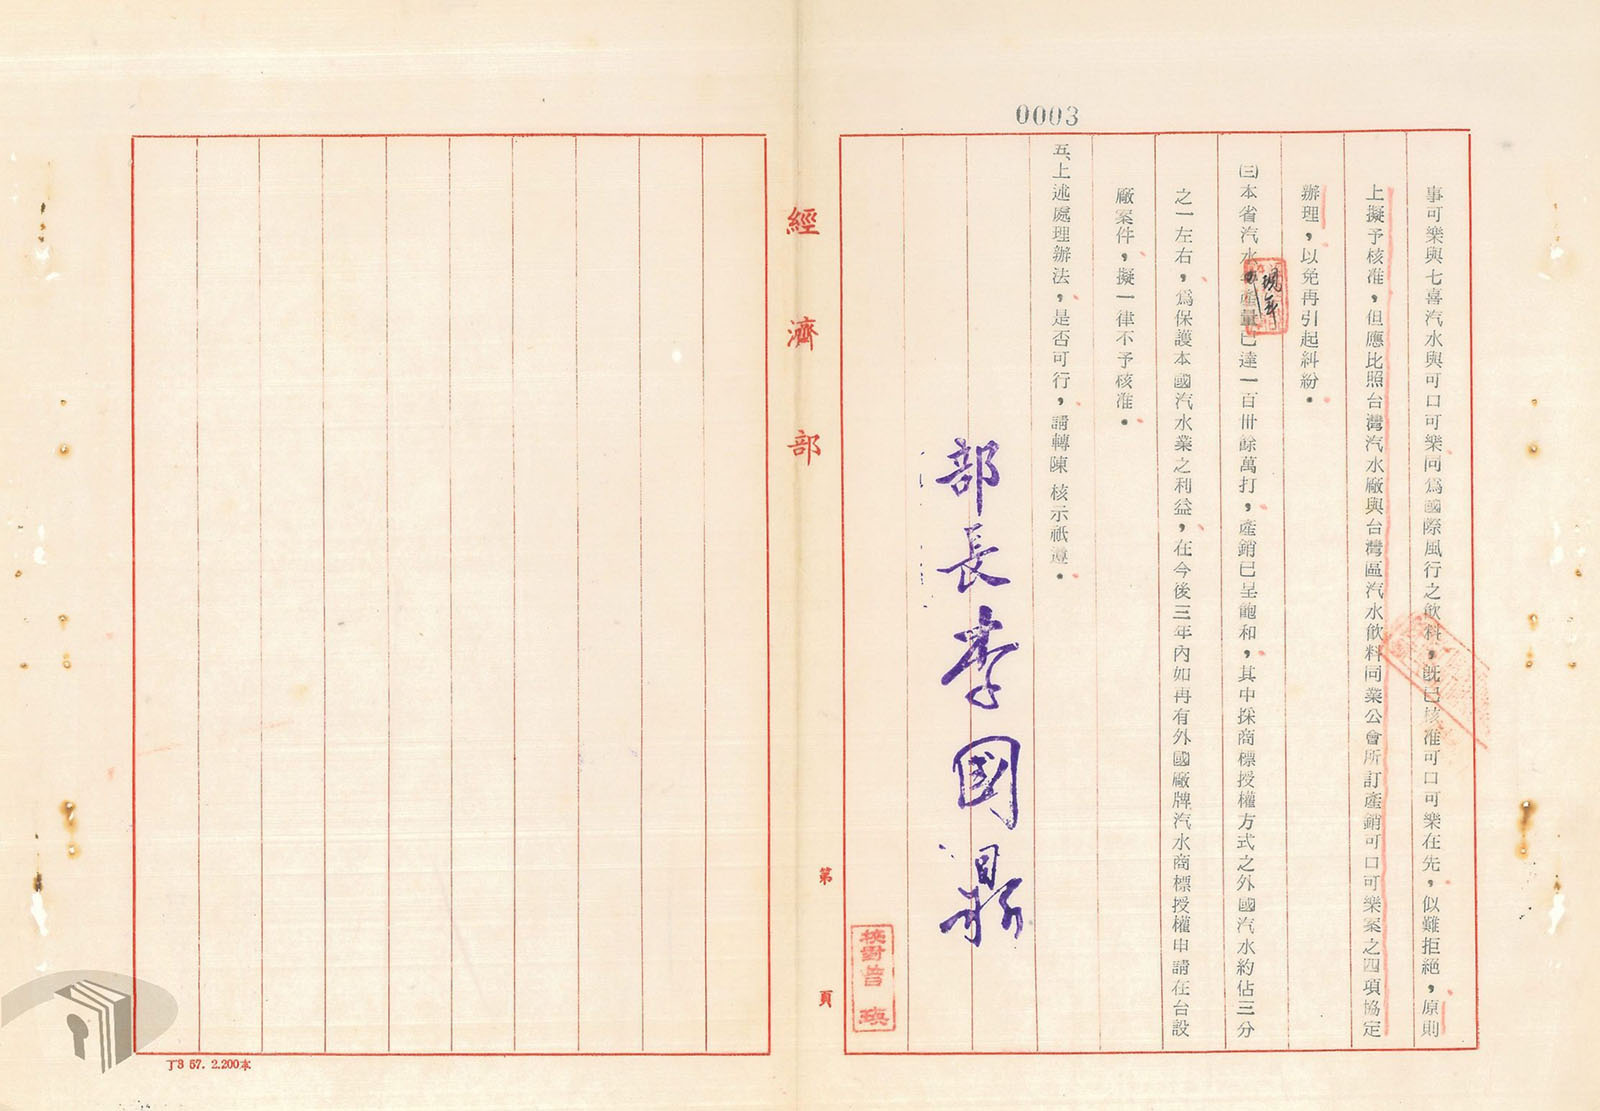 0003
事可樂與七喜汽水與可口可樂同爲國際風行之飲料，旣已核准可口可樂在先，似難拒絕，原則
上擬予核准，但應比照台灣汽水廠與台灣區汽水飲料同業公會所訂產銷可口可樂案之四項協定
辦理，以免再引起糾紛。
㈢本省汽水現年產量已達一百卅餘萬打，產銷已呈飽和，其中採商標授權方式之外國汽水約佔三分
之一左右，爲保護本國汽水業之利益，在今後三年內如再有外國廠牌汽水商標授權申請在台設
廠案件，擬一律不予核准。
五、上述處理辦法，是否可行，請轉陳 核示祇遵。
部長李國鼎
經濟部
第 頁
校對曾瑛
丁3 57. 2.200本